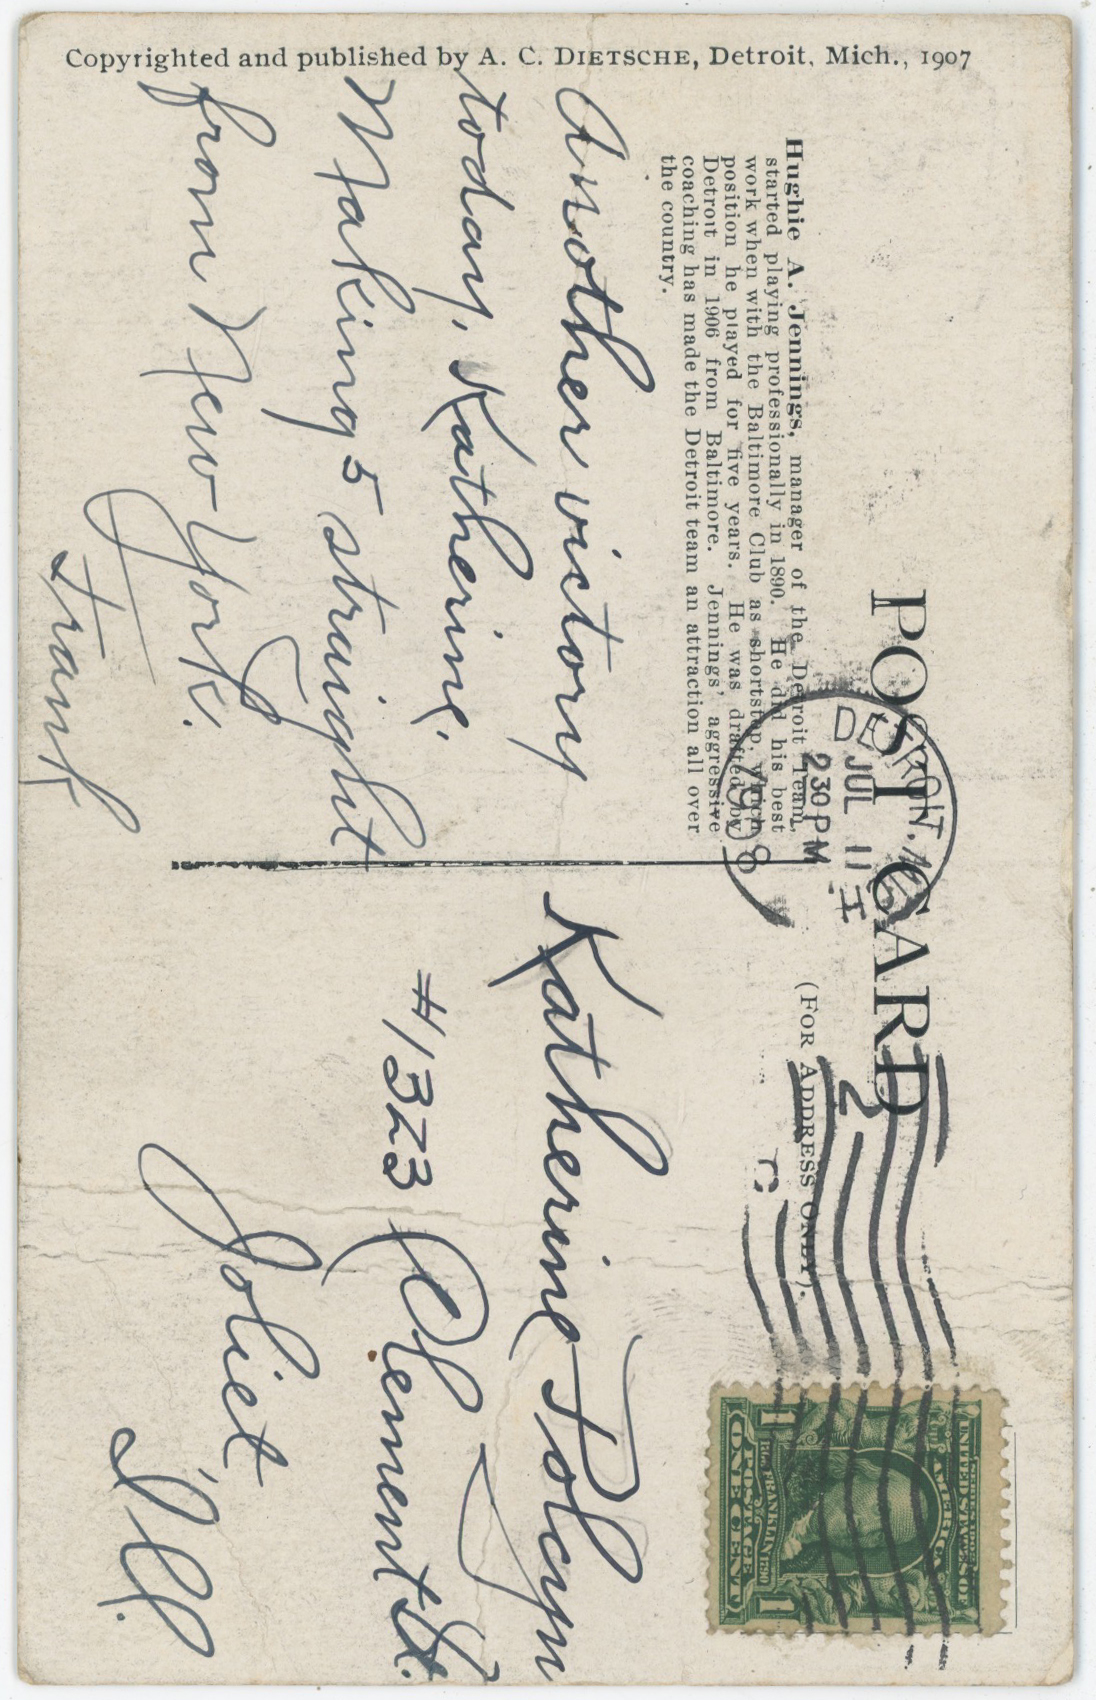 Copyrighted and published by A. C. DIETSCHE, Detroit, Mich., 1907
POST CARD
(FOR ADDRESS ONLY).
Hughie A. Jennings, manager of the Detroit Team,
started playing professionally in 1890. He did his best
work when with the Baltimore Club as shortstop, which
position he played for five years. He was drafted by
Detroit in 1906 from Baltimore. Jennings' aggressive
coaching has made the Detroit team an attraction all over
the country.
DETROIT, MICH.
JUL 11
230 PM
1908
2
UNITED STATES OF
AMERICA
1706 FRANKLIN 1790
POSTAGE
1 ONE CENT 1
Another victory
today, Katherine.
Making 5 straight
from New York.
Frank
Katherine
#1323 Clement St.
Joliet
Ill.